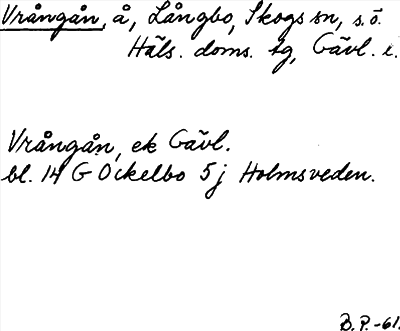 Vrångån, å, Långbo, Skogs sn, s.ö.
Häls. doms. tg, Gävl. l.
Vrångån, ek Gävl.
bl. 14 G Ockelbo 5j Holmsveden.
B.P.-61.